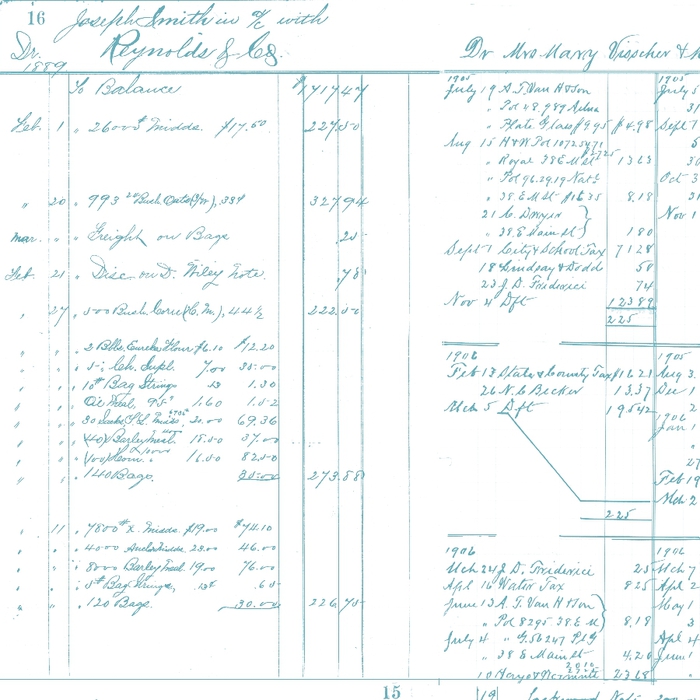 16
Joseph Smith in a/c with
Reynolds & Co.
Dr.
1889
To Balance $1717 47
Feb. 1 " 2600# Midds. $17.50 227.50
" 20 " 993 Bush Oats 33¢ 327 94
Mar. " " Freight on Bags .25
Feb. 21 " Disc. on D. Wiley Note .78
" 27 " 500 Bush. Corn (C. M.), 44½ 222.50
" " " 2 Bbls. Eureka Flour $6.10 $12.20
" " " 5 Ch. Supl. 7.00 35.00
" " " 10# Bag Strings 13 1.30
" " " Oil Meal, 95# 1.60 1.52
" " " 30 Sacks Midds. 20.00 69.36
" " " (40) Barley Meal. 18.50 37.00
" " " (100) Corn. 16.50 82.50
" " " 140 Bags. 35.00 273.88
" 11 " 7800# x. Midds. $19.00 $74.10
" " " 4000 Midds 23.00 46.00
" " " 8000 Barley Meal 19.00 76.00
" " " 5# Bag Strings, 13¢ 65
" " " 120 Bags. 30.00 226.75
15
Dr Mrs Mary Visscher &
1905
July 19 A. T. Van H & Son
" Pol 48,989
" Plate Glass $9.95 $4.98
Aug 15 H & W Pol
" Royal 38 E M st 13 63
" Pol 96.29.19 Nat'l
" 38 E M St 8.18
21 C. Dwyer
" 38 E Main st 1 80
Sept 1 City & School Tax 71 28
18 Lindsay & Dodds 50
23 J. D. Friderici 74
Nov 4 Dft 123 89
225
1906
Feb 13 State & County Tax $16 21
26 N. C. Becker 13.37
Mch 5 Dft 195 42
225
1906
Mch 24 J. D. Friderici 25
Apl 16 Water Tax 8 25
June 13 A. T. Van H & Son
" Pol 8295 38 E M 8.18
July 4 " G. 56247 Pl G
" 38 E Main St 4.26
10 23 68
19
1905
July 5
31
Sept 1
5
30
Oct 3
31
Nov 1
1905
Aug 3
Dec 1
2
1906
Jan 1
27
Feb 19
Mch 2
1906
Mch 7
Apl 2
May 1
3
Apl 4
June 1